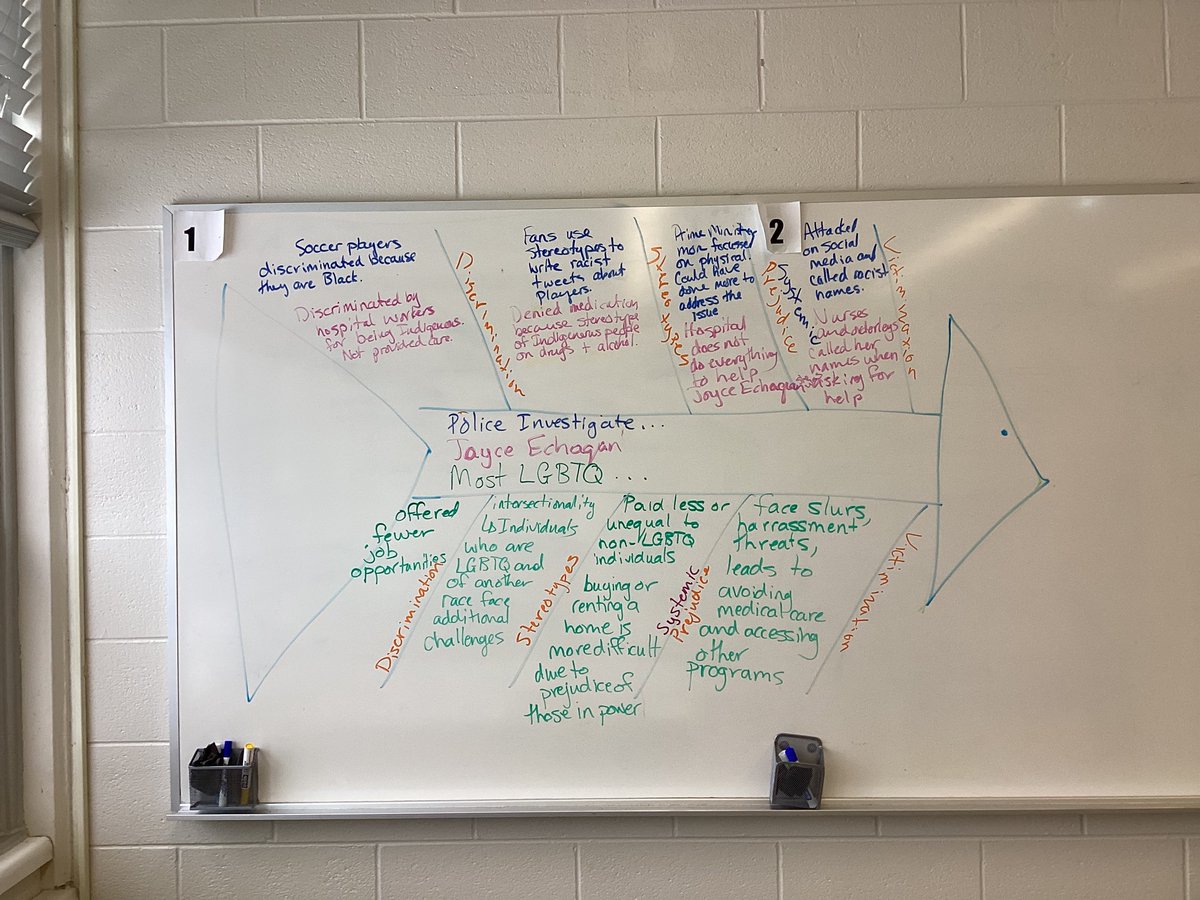 1
Soccer players
discriminated because
they are Black.
Discriminated by
hospital workers
for being Indigenous.
Not provided care.
Discrimination
Fans use
stereotypes to
write racist
tweets about
players.
Denied medication
because stereotype
of Indigenous people
on drugs + alcohol.
Stereotypes
Prime Minister
more focussed
on physical.
Could have
done more to
address the
issue
Hospital
does not
do everything
to help
Joyce Echaquan
Systemic
Prejudice
2
Attacked
on social
media and
called racist
names.
Nurses
and orderlys
called her
names when
asking for
help
Victimization
Police Investigate...
Joyce Echaqan
Most LGBTQ ...
offered
fewer
job
opportunities
Discrimination
intersectionality
↳ Individuals
who are
LGBTQ and
of another
race face
additional
challenges
Stereotypes
Paid less or
unequal to
non-LGBTQ
individuals
buying or
renting a
home is
more difficult
due to
prejudice of
those in power
Systemic
Prejudice
face slurs,
harrassment,
threats,
leads to
avoiding
medical care
and accessing
other
programs
Victimination